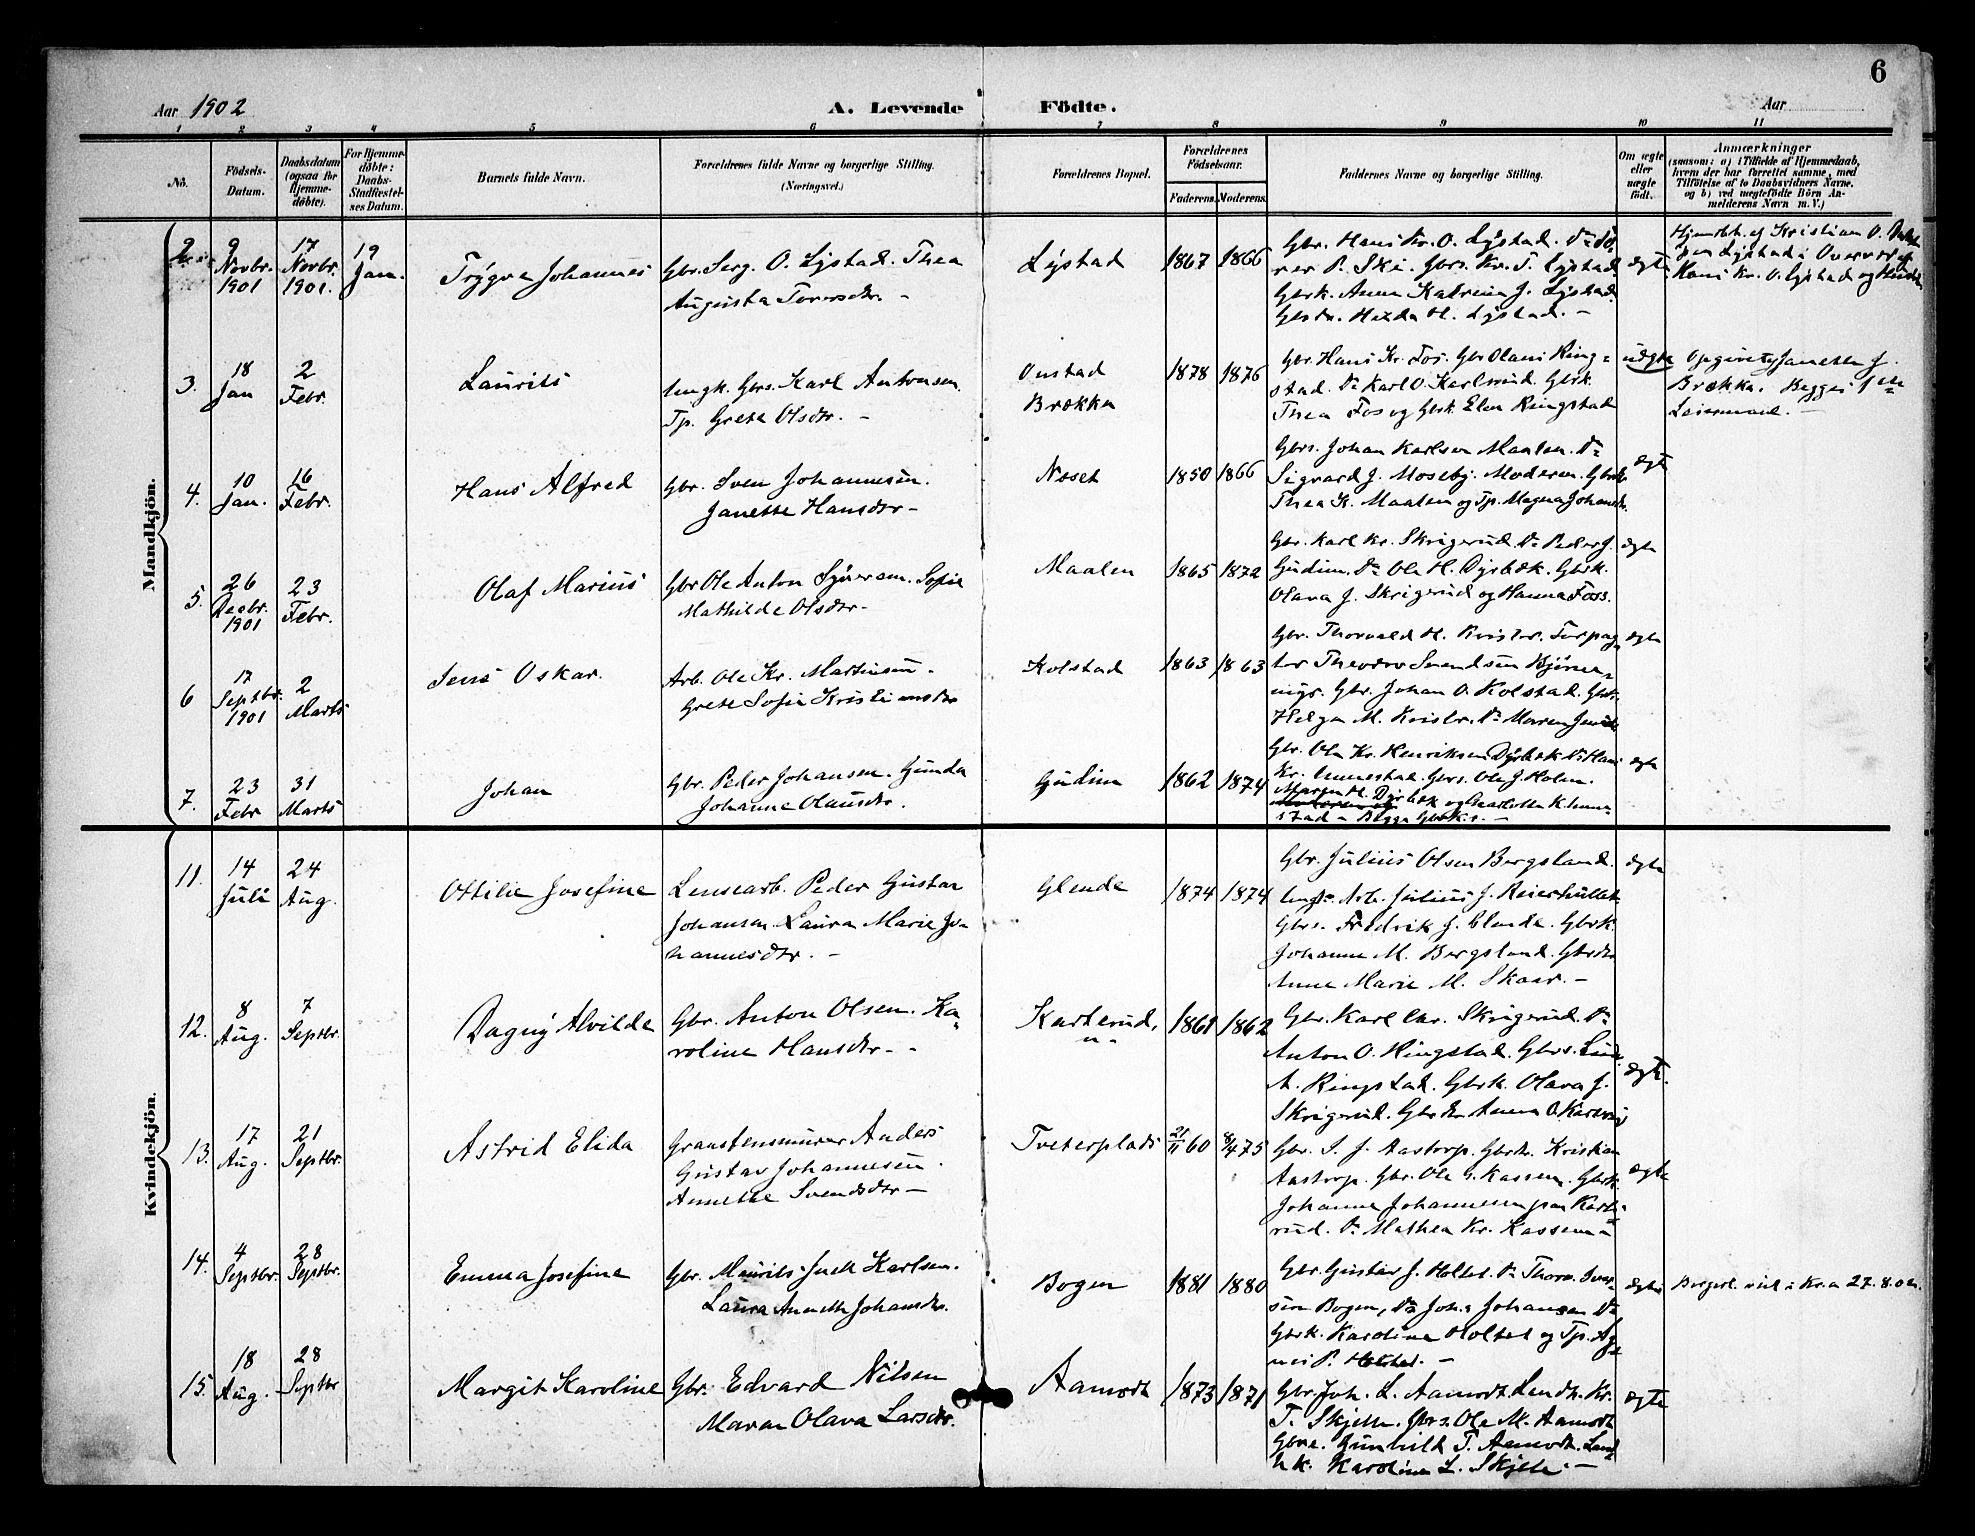 6
Aar 1902
A. Levende Födte.
Aar
1 2 3 4 5 6 7 8 9 10 11
No.
Födsels-Datum.
Daabsdatum (ogsaa for Hjemme-döbte).
For Hjemme-döbte: Daabs-Stadfæstel-ses Datum.
Barnets fulde Navn.
Forældrenes fulde Navne og borgerlige Stilling.
(Næringsvei.)
Forældrenes Bopæl.
Forældrenes Födselsaar.
Faderens. Moderens.
Faddernes Navne og borgerlige Stilling.
Om ægte eller uægte födt.
Anmærkninger
(saasom: a) i Tilfælde af Hjemmedaab,
hvem der har forrettet samme, med
Tilföielse af to Daabsvidners Navne,
og b) ved uægtefödte Börn An-
melderens Navn m. V.)
Mandkjön.
2
9 Novbr. 1901
17 Novbr. 1901.
19 Jan.
Trygve Johannes
Gbr. Serg. O. Lystad. Thea
Augusta Toresdtr. -
Lystad
1867 1866
Gbr. Hans Kr. O. Lystad. Do To-
rer P. Ski. Gbrs. Kr. T. Lystad.
Gbrk. Anna Katrina J. Lystad.
Gbrdtr. Hulda H. Lystad. -
ægte
Hjemdbt. af Kristian O.
Lystad i Overvær af
Hans Kr. O. Lystad og
3.
18 Jan
2 Febr.
Laurits
Ungk. Gbrs. Karl Antonsen.
Tp. Grete Olsdtr. -
Onstad
Brækka
1878 1876
Gbr. Hans Kr. Fos. Gbr Olaus Ring-
stad. Do Karl O. Karlsrud. Gbrk.
Thea Fos og Gbrk. Elen Ringstad
uægte
Opgivet af Janette J.
Brækka. Begges 1ste
Leiermaal. -
4.
10 Jan.
16 Febr.
Hans Alfred
Gbr. Sven Johannesen.
Janette Hansdtr -
Næset
1850 1866
Gbrs. Johan Karlsen Maalen. Do
Sigvard J. Moseby. Moderen. Gbrk.
Thea K. Maalen og Tp. Magna Johansdtr.
ægte
5.
26 Decbr. 1901
23 Febr.
Olaf Marius
Gbr Ole Anton Syversen. Sofie
Mathilde Olsdtr -
Maalen
1865 1872
Gbr. Karl Kr. Skrigerud. Do Peder J.
Gudim. Do Ole H. Dyrbæk. Gbrk.
Olava J. Skrigerud og Hanna Foss.
ægte
6
17 Septbr. 1901
2 Marts
Jens Oskar.
Arb. Ole Kr. Martinsen -
Grete Sofie Kristiansdtr
Kolstad
1863 1863
Gbr. Thorvald H. Kvisler. Forpag-
ter Theodor Svendsen
Gbr. Johan O. Kolstad. Gbrk.
Helga M. Kvisler. Do Maren
ægte
7.
23 Febr
31 Marts
Johan
Gbr. Peder Johansen. Gunda
Johanne Olausdtr.
Gudim
1862 1874
Gbr. Ole Kr. Henriksen Dyrbæk. Do Hans
Kr. Unnestad. Gbrs. Ole J. Holen.
Maren H. Dyrbæk og Charlotte K. Unne-
stad - Begge Gbrk.s. -
ægte
Kvindekjön.
11.
14 Juli
24 Aug.
Ottilie Josefine
Lensearb. Peder Gustav
Johansen. Laura Marie Jo-
hannesdtr. -
Glende
1874 1874
Gbr. Julius Olsen Bergsland.
Arb. Julius J.
Gbrs. Fredrik J. Glende. Gbrk.
Johanne M. Bergsland. Gbrdtr
Anne Marie M. Skaar. -
ægte
12.
8 Aug.
7 Septbr.
Dagny Alvilde
Gbr. Anton Olsen. Ka-
roline Hansdtr - -
Karterud.
1861 1862
Gbr. Karl Chr. Skrigerud. Do
Anton O. Ringstad. Gbrs.
A. Ringstad. Gbrk. Olava J.
Skrigerud. Gbrdtr Anna O.
ægte.
13.
17 Aug.
21 Septbr.
Astrid Elida
Granstensmurer Anders
Gustav Johannesen.
Annette Svendsdtr -
Tveterplads
21/11 60 8/4 75
Gbr. S. J. Aastorp. Kristian
Aastorp. Gbr. Ole G. Kassem. Gbrk.
Johanne Johannessen paa Karte-
rud. Do Mathea Kr. Kassem -
ægte
14.
4 Septbr.
28 Septbr.
Emma Josefine
Gbr. Maurits Karlsen.
Laura Annette Johansdtr.
Bogen
1881 1880
Gbr. Gustav J. Holtet. Do Thorv. Svend-
sen Bogen, Do Johs Johansen Do
Gbrk. Karoline Holtet og Tp. Ag-
nes P. Holtet. -
ægte
Borgerl. viet i Kr.a 27.8.02.
15.
18 Aug.
28 Septbr
Margit Karoline
Gbr. Edvard Nilsen
Maren Olava Larsdtr.
Aamodt
1873 1871
Gbr. Joh. L. Aamodt. Landh. Kr.
T. Skjelle. Gbrs. Ole M. Aamodt
Gunhild T. Aamodt. Land-
hk. Karoline L. Skjelle. -
ægte